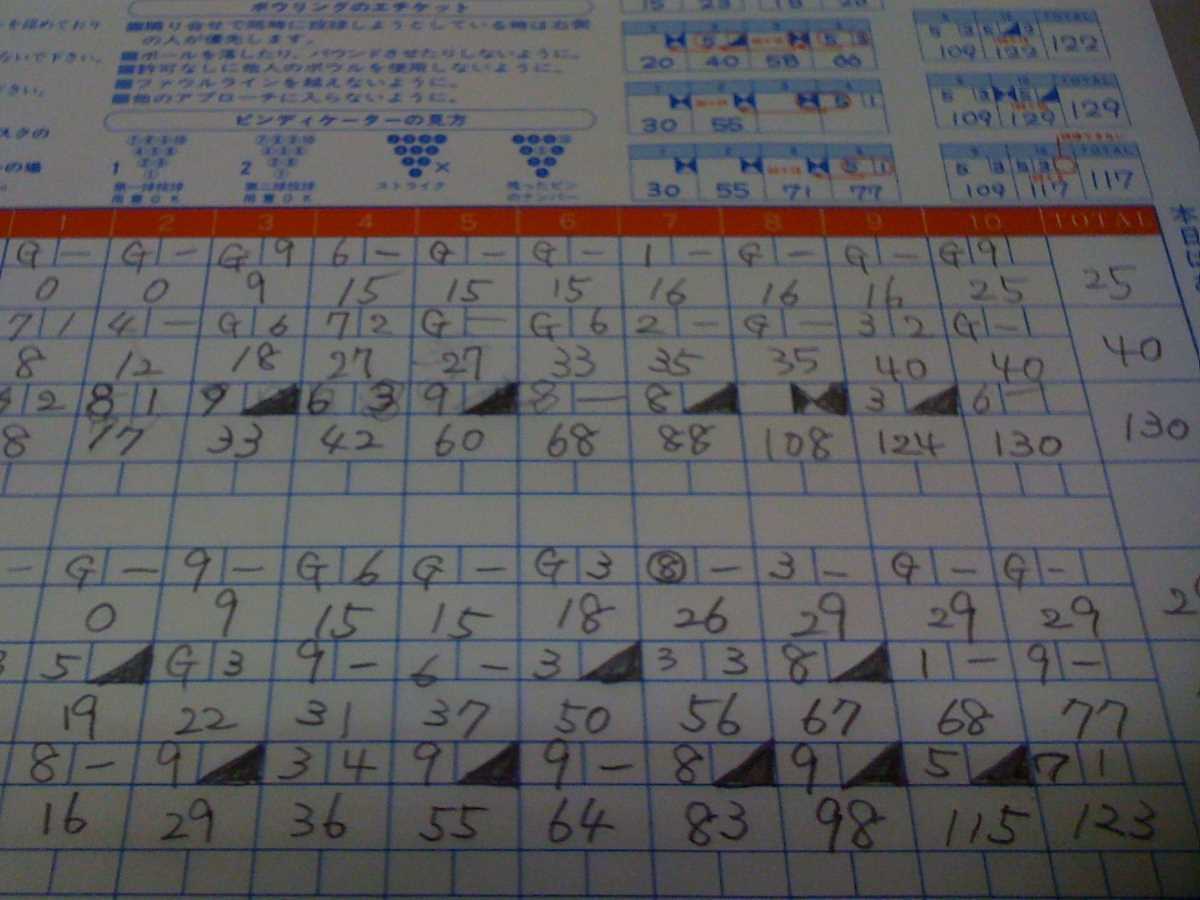 ボウリングのエチケット
■隣り合せで同時に投球しようとしている時は右側
の人が優先します。
■ボールを落したり、バウンドさせたりしないように。
■許可なしに他人のボウルを使用しないように。
■ファウルラインを越えないように。
■他のアプローチに入らないように。
ピンディケーターの見方
1 第一球投球
用意OK
2 第二球投球
用意OK
ストライク
残ったピン
のナンバー
20 40 58 66
30 55
30 55 71 77
TOTAL
109 122 122
TOTAL
109 129 129
TOTAL
109 117 117
1 2 3 4 5 6 7 8 9 10 TOTAL
G - G - G 9 6 - G - G - 1 - G - G - G 9
0 0 9 15 15 15 16 16 16 25 25
7 1 4 - G 6 7 2 G - G 6 2 - G - 3 2 G -
8 12 18 27 27 33 35 35 40 40 40
2 8 1 9 6 3 9 8 - 8 3 6 -
8 17 33 42 60 68 88 108 124 130 130
- G - 9 - G 6 G - G 3 ⑧ - 3 - G - G -
0 9 15 15 18 26 29 29 29
5 G 3 9 - 6 - 3 3 3 8 1 - 9 -
19 22 31 37 50 56 67 68 77
8 - 9 3 4 9 9 - 8 9 5 7 1
16 29 36 55 64 83 98 115 123